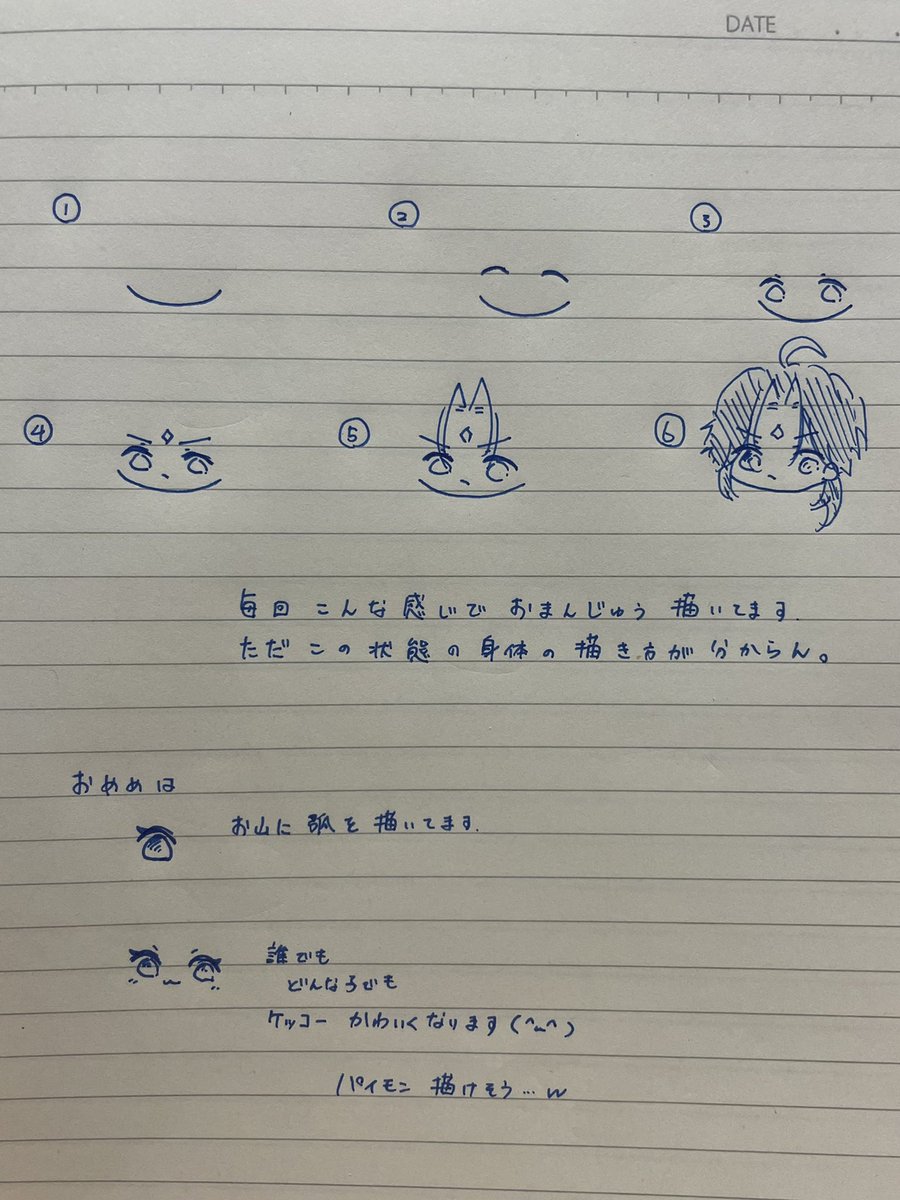 DATE . .
① ② ③
④ ⑤ ⑥
毎回 こんな 感じで おまんじゅう 描いてます.
ただ この 状態の 身体の 描き方が 分からん。
おめめは
お山に 弧を 描いてます.
誰でも
どんな子でも
ケッコー かわいくなります(^_^)
パイモン 描けそう…w